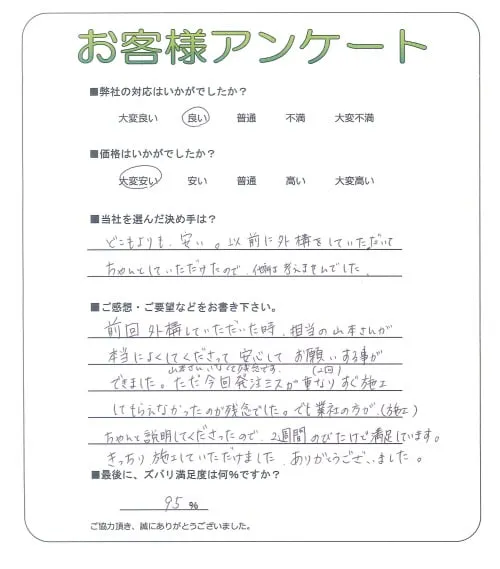 お客様アンケート
■弊社の対応はいかがでしたか？
大変良い 良い 普通 不満 大変不満
■価格はいかがでしたか？
大変安い 安い 普通 高い 大変高い
■当社を選んだ決め手は？
どこもよりも、安い。以前に外構をしていただいて
ちゃんとしていただけたので、他は考えませんでした。
■ご感想・ご要望などをお書き下さい。
前回外構していただいた時、担当の山本さんが
本当によくしてくださって安心してお願いする事が
山本さんいなくて残念です。 (2回)
できました。ただ今回発注ミスが重なりすぐ施工
してもらえなかったのが残念でした。でも業社の方が、(施工)
ちゃんと説明してくださったので、2週間のびただけで満足しています。
きっちり施工していただけました。ありがとうございました。
■最後に、ズバリ満足度は何％ですか？
95 %
ご協力頂き、誠にありがとうございました。